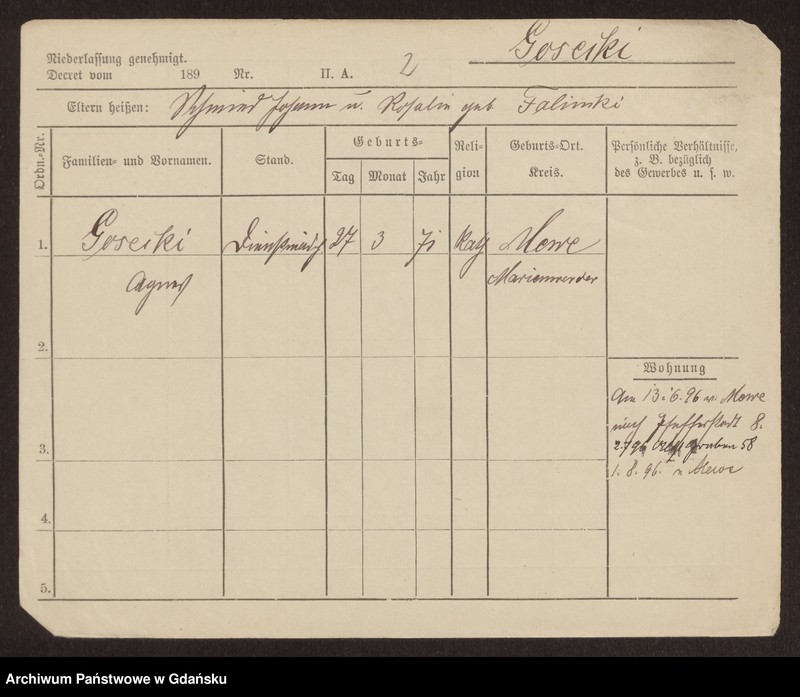 Goseiki
Niederlassung genehmigt.
Decret vom 189 Nr. II. A. 2
Eltern heißen: Schmied Johann u. Rosalie geb Falinski
Ordn.-Nr.
Familien- und Vornamen.
Stand.
Geburts-
Tag Monat Jahr
Reli-
gion
Geburts-Ort.
Kreis.
Persönliche Verhältnisse,
z. B. bezüglich
des Gewerbes u. s. w.
1. Goseiki Dienstmädch 27 3 71 Kath Mewe
Agnes Marienwerder
2.
3.
4.
5.
Wohnung
Am 13.6.96 v. Mewe
nach Pfefferstadt 8.
2.7.96 graben 58
1.8.96. n Mewe
Archiwum Państwowe w Gdańsku